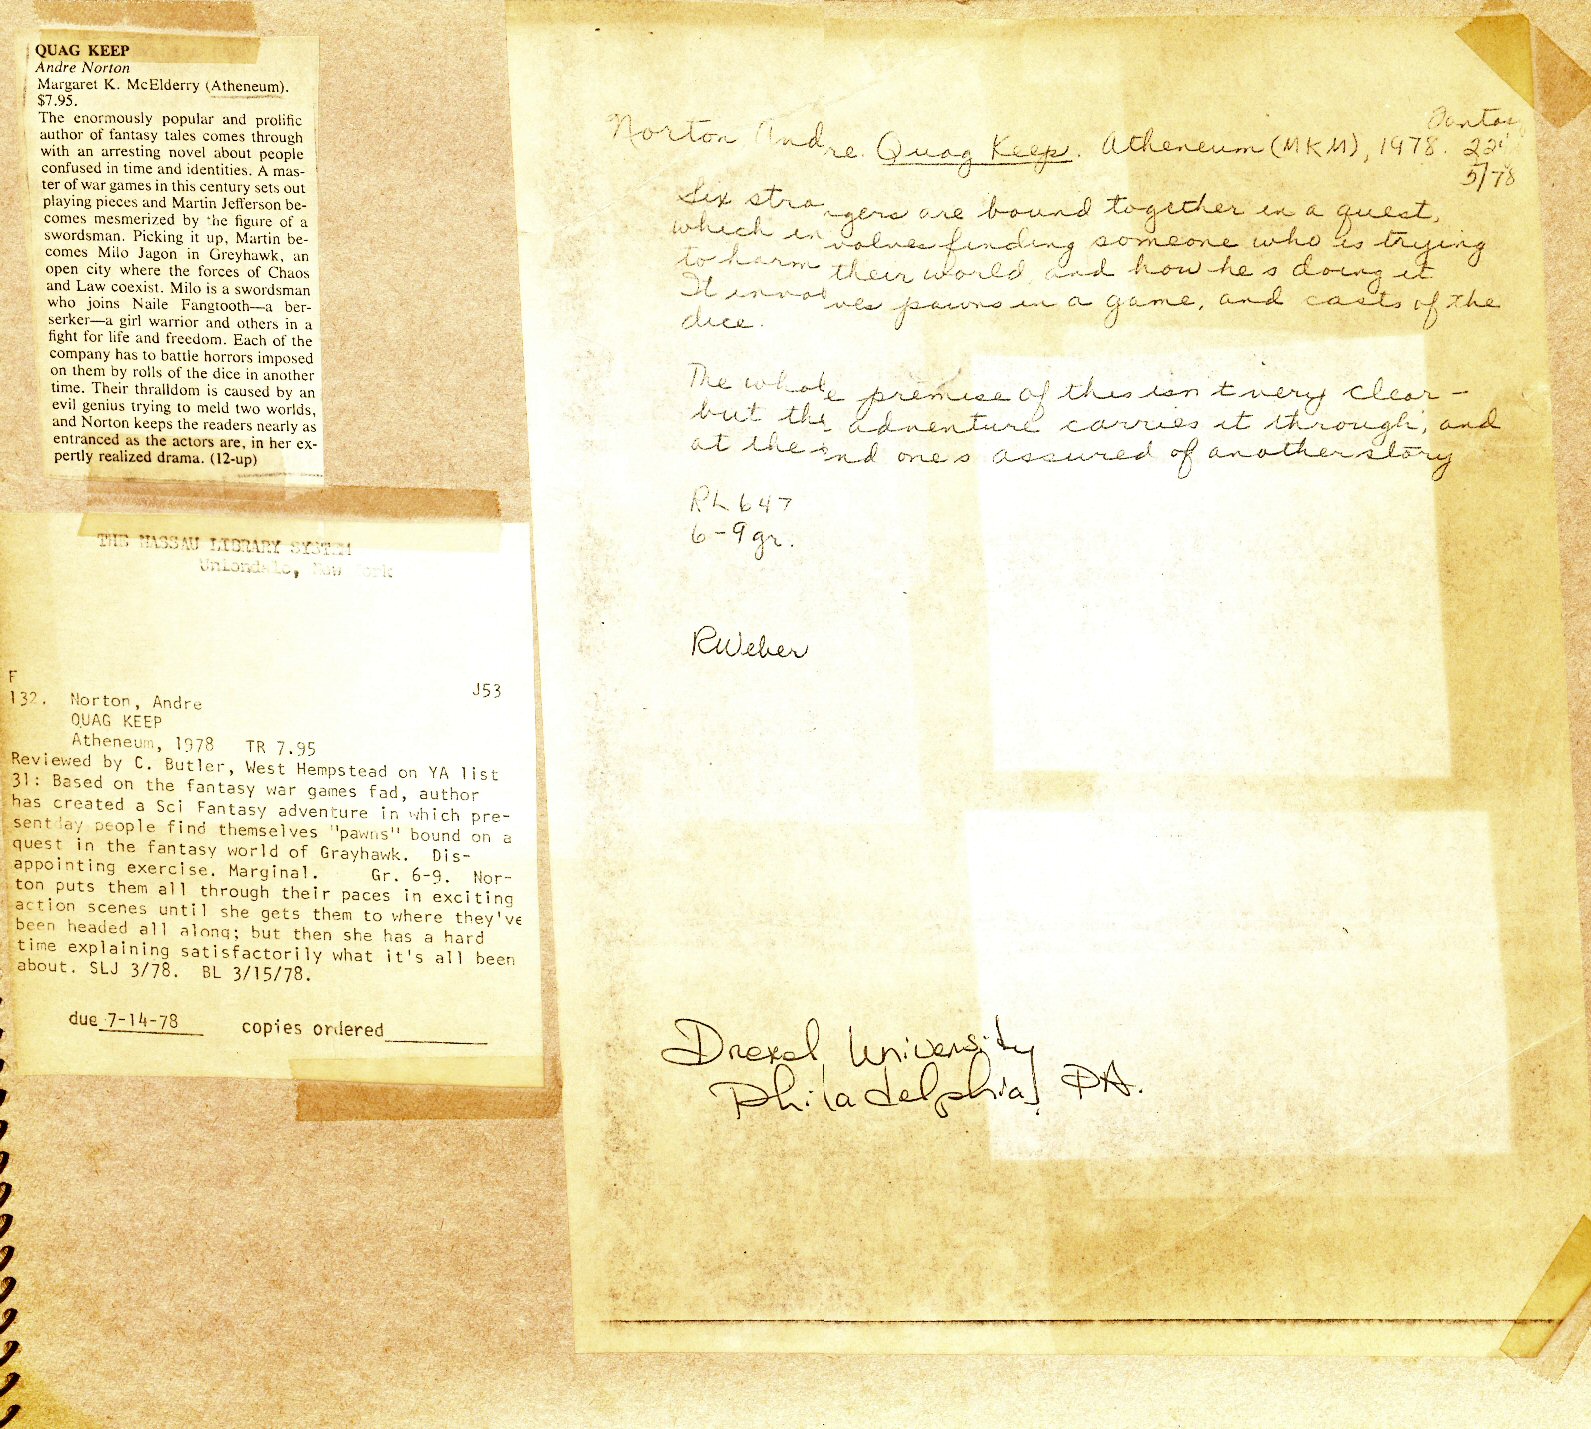 QUAG KEEP
Andre Norton
Margaret K. McElderry (Atheneum).
$7.95.
The enormously popular and prolific
author of fantasy tales comes through
with an arresting novel about people
confused in time and identities. A mas-
ter of war games in this century sets out
playing pieces and Martin Jefferson be-
comes mesmerized by the figure of a
swordsman. Picking it up, Martin be-
comes Milo Jagon in Greyhawk, an
open city where the forces of Chaos
and Law coexist. Milo is a swordsman
who joins Naile Fangtooth—a ber-
serker—a girl warrior and others in a
fight for life and freedom. Each of the
company has to battle horrors imposed
on them by rolls of the dice in another
time. Their thralldom is caused by an
evil genius trying to meld two worlds,
and Norton keeps the readers nearly as
entranced as the actors are, in her ex-
pertly realized drama. (12-up)
THE NASSAU LIBRARY SYSTEM
Uniondale, New York
F
J53
132. Norton, Andre
QUAG KEEP
Atheneum, 1978 TR 7.95
Reviewed by C. Butler, West Hempstead on YA list
31: Based on the fantasy war games fad, author
has created a Sci Fantasy adventure in which pre-
sentday people find themselves "pawns" bound on a
quest in the fantasy world of Grayhawk. Dis-
appointing exercise. Marginal. Gr. 6-9. Nor-
ton puts them all through their paces in exciting
action scenes until she gets them to where they've
been headed all along; but then she has a hard
time explaining satisfactorily what it's all been
about. SLJ 3/78. BL 3/15/78.
due 7-14-78 copies ordered
Norton Andre. Quag Keep. Atheneum (MKM), 1978.
5/78
Six strangers are bound together in a quest,
which involves finding someone who is trying
to harm their world and how he's doing it
It involves pawns in a game, and casts of the
dice.
The whole premise of this isn't very clear –
but the adventure carries it through, and
at the end one's assured of another story
RL 647
6-9 gr.
RWeber
Drexel University
Philadelphia, PA.